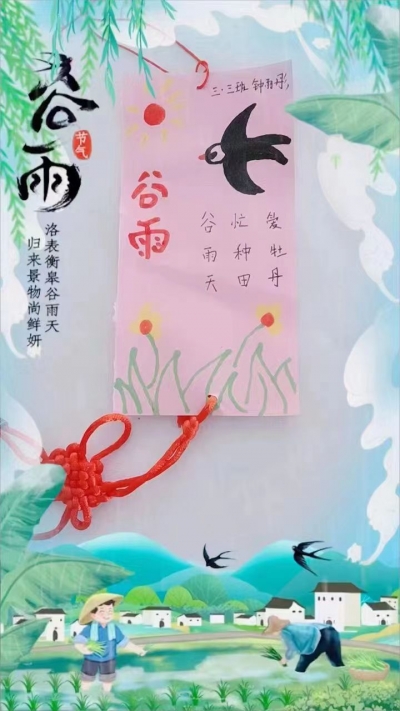 谷雨
节气
洛表衡皋谷雨天
归来景物尚鲜妍
三·三班 钟
谷雨
谷雨天
忙种田
爱牡丹